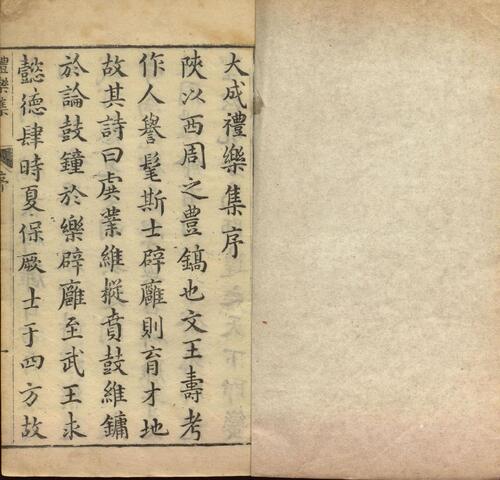 大成禮樂集序
陝以西周之豊鎬也文王壽考
作人譽髦斯士辟廱則育才地
故其詩曰虡業維樅賁鼓維鏞
於論鼓鐘於樂辟廱至武王求
懿德肆時夏保厥士于四方故
禮樂集
序
一